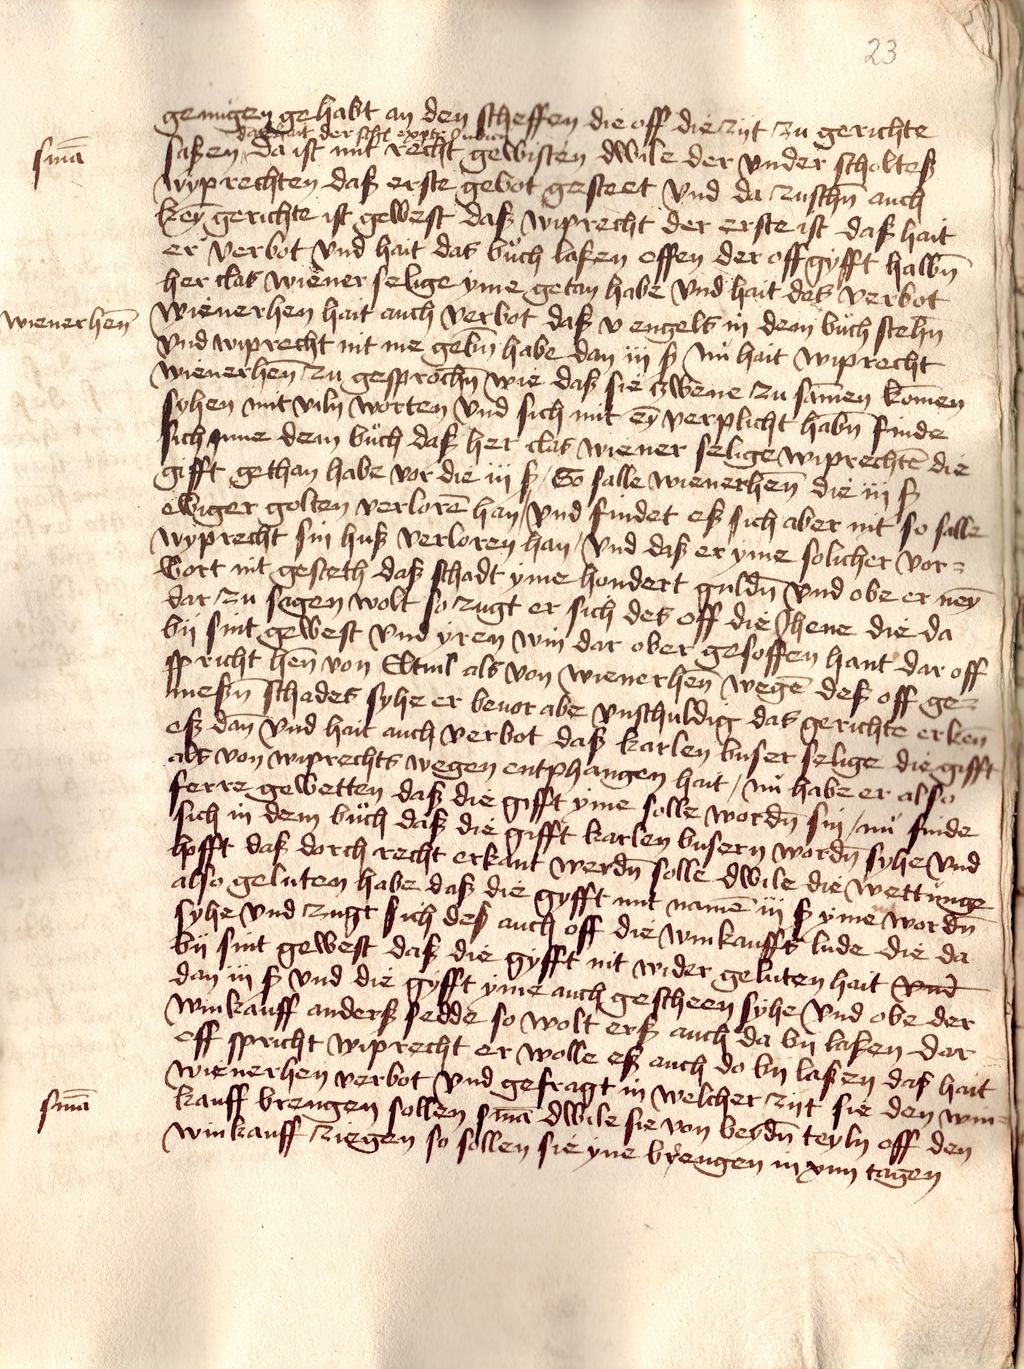 23
genugen gehabt an den scheffen die off die zijt zu gerichte
das hait der
saßen da ist mit recht gewisten dwile der vnder scholteß
sniā
wyprechten daß erste gebot gesteet vnd da zuschn̄ auch
keȳ gerichte ist gewest daß wiprecht der erste ist daß hait
er verbot vnd hait das bůch laßen offen der offgyfft halbn̄
her clas wiener selige yme getan habe vnd hait des verbot
wienerhen̄
wienerhen hait auch verbot daß v engels in dem bůch stehn̄
vnd wiprecht nit me gebn̄ habe dan iij ß nů hait wiprecht
wienerhen̄ zu gesprochn̄ wie daß sie zwene zu sāmen kōmen
syhen mit viln worten vnd sich mit eȳ verplicht habn̄ finde
sich inne dem bůch daß her clas wiener selige wiprechtē die
gifft gethan habe vor die iij ß / So salle wienerhen̄ die iij ß
ewiger golten verlorē han / vnd findet eß sich aber nit so salle
wyprecht sin huß verloren han / vnd daß er yme solicher vor=
wort nit gesteth daß schadt yme hondert guldn̄ vnd obe er neȳ
dar zu sagen wolt so zugt er sich des off die Jhene die da
bij sint gewest vnd yren win dar ober gesoffen hant dar off
spricht hen̄ von Eltuil als von wienerhen̄ wegē deß off ge=
meßn̄ schades syhe er beuor abe vnschuldig das gerichte erken̄
eß dan̄ vnd hait auch verbot daß karlen buser selige die gifft
als von wiprechts wegen entphangen hait / nů habe er also
ferre gewetten daß die gifft yme solle wordn̄ sin / nů finde
sich in dem bůch daß die gifft karlen busern wordn̄ syhe vnd
hofft daß dorch recht erkant werdn̄ solle dwile die wettunge
also geluten habe daß die gyfft mit namē iij ß yme wordn̄
syhe vnd zugt sich deß auch off die winkauffs lude die da
bij sint gewest daß die gyfft nit wider geluten hait vnd
dan iij ß vnd die gyfft yme auch gescheen syhe vnd obe der
winkauff anderß sedde so wolt erß auch da bij laßen dar
off spricht wiprecht er wolle eß auch do bij laßen daß hait
wienerhen verbot vnd gefragt in welcher zijt sie den win=
sniā
kauff brengen sollen sniā dwile sie von beydn̄ teyln off den
winkauff ziegen so sollen sie yne brengen in xiiij tagen